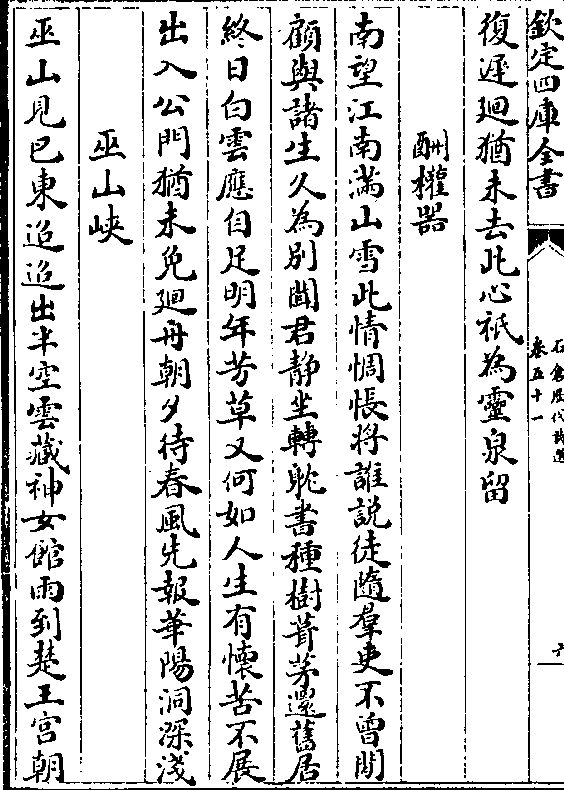 欽定四庫全書
石倉歷代詩選
卷五十一
復遲廻猶未去此心祇為靈泉留
酬權器
南望江南滿山雪此情惆悵將誰說徒隨羣吏不曾閒
顧與諸生久為別聞君静坐轉躭書種樹葺茅還舊居
終日白雲應自足明年芳草又何如人生有懷苦不展
出入公門猶未免廻舟朝夕待春風先報華陽洞深淺
巫山峽
巫山見巴東迢迢出半空雲藏神女館雨到楚王宫朝